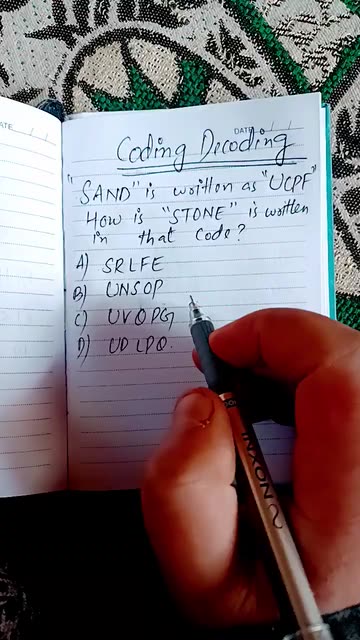 DATE
DATE
Coding Decoding
"SAND" is written as "UCPF"
How is "STONE" is written
in that code?
A) SRLFE
B) UNSOP
C) UVQPG
D) UDLPQ.